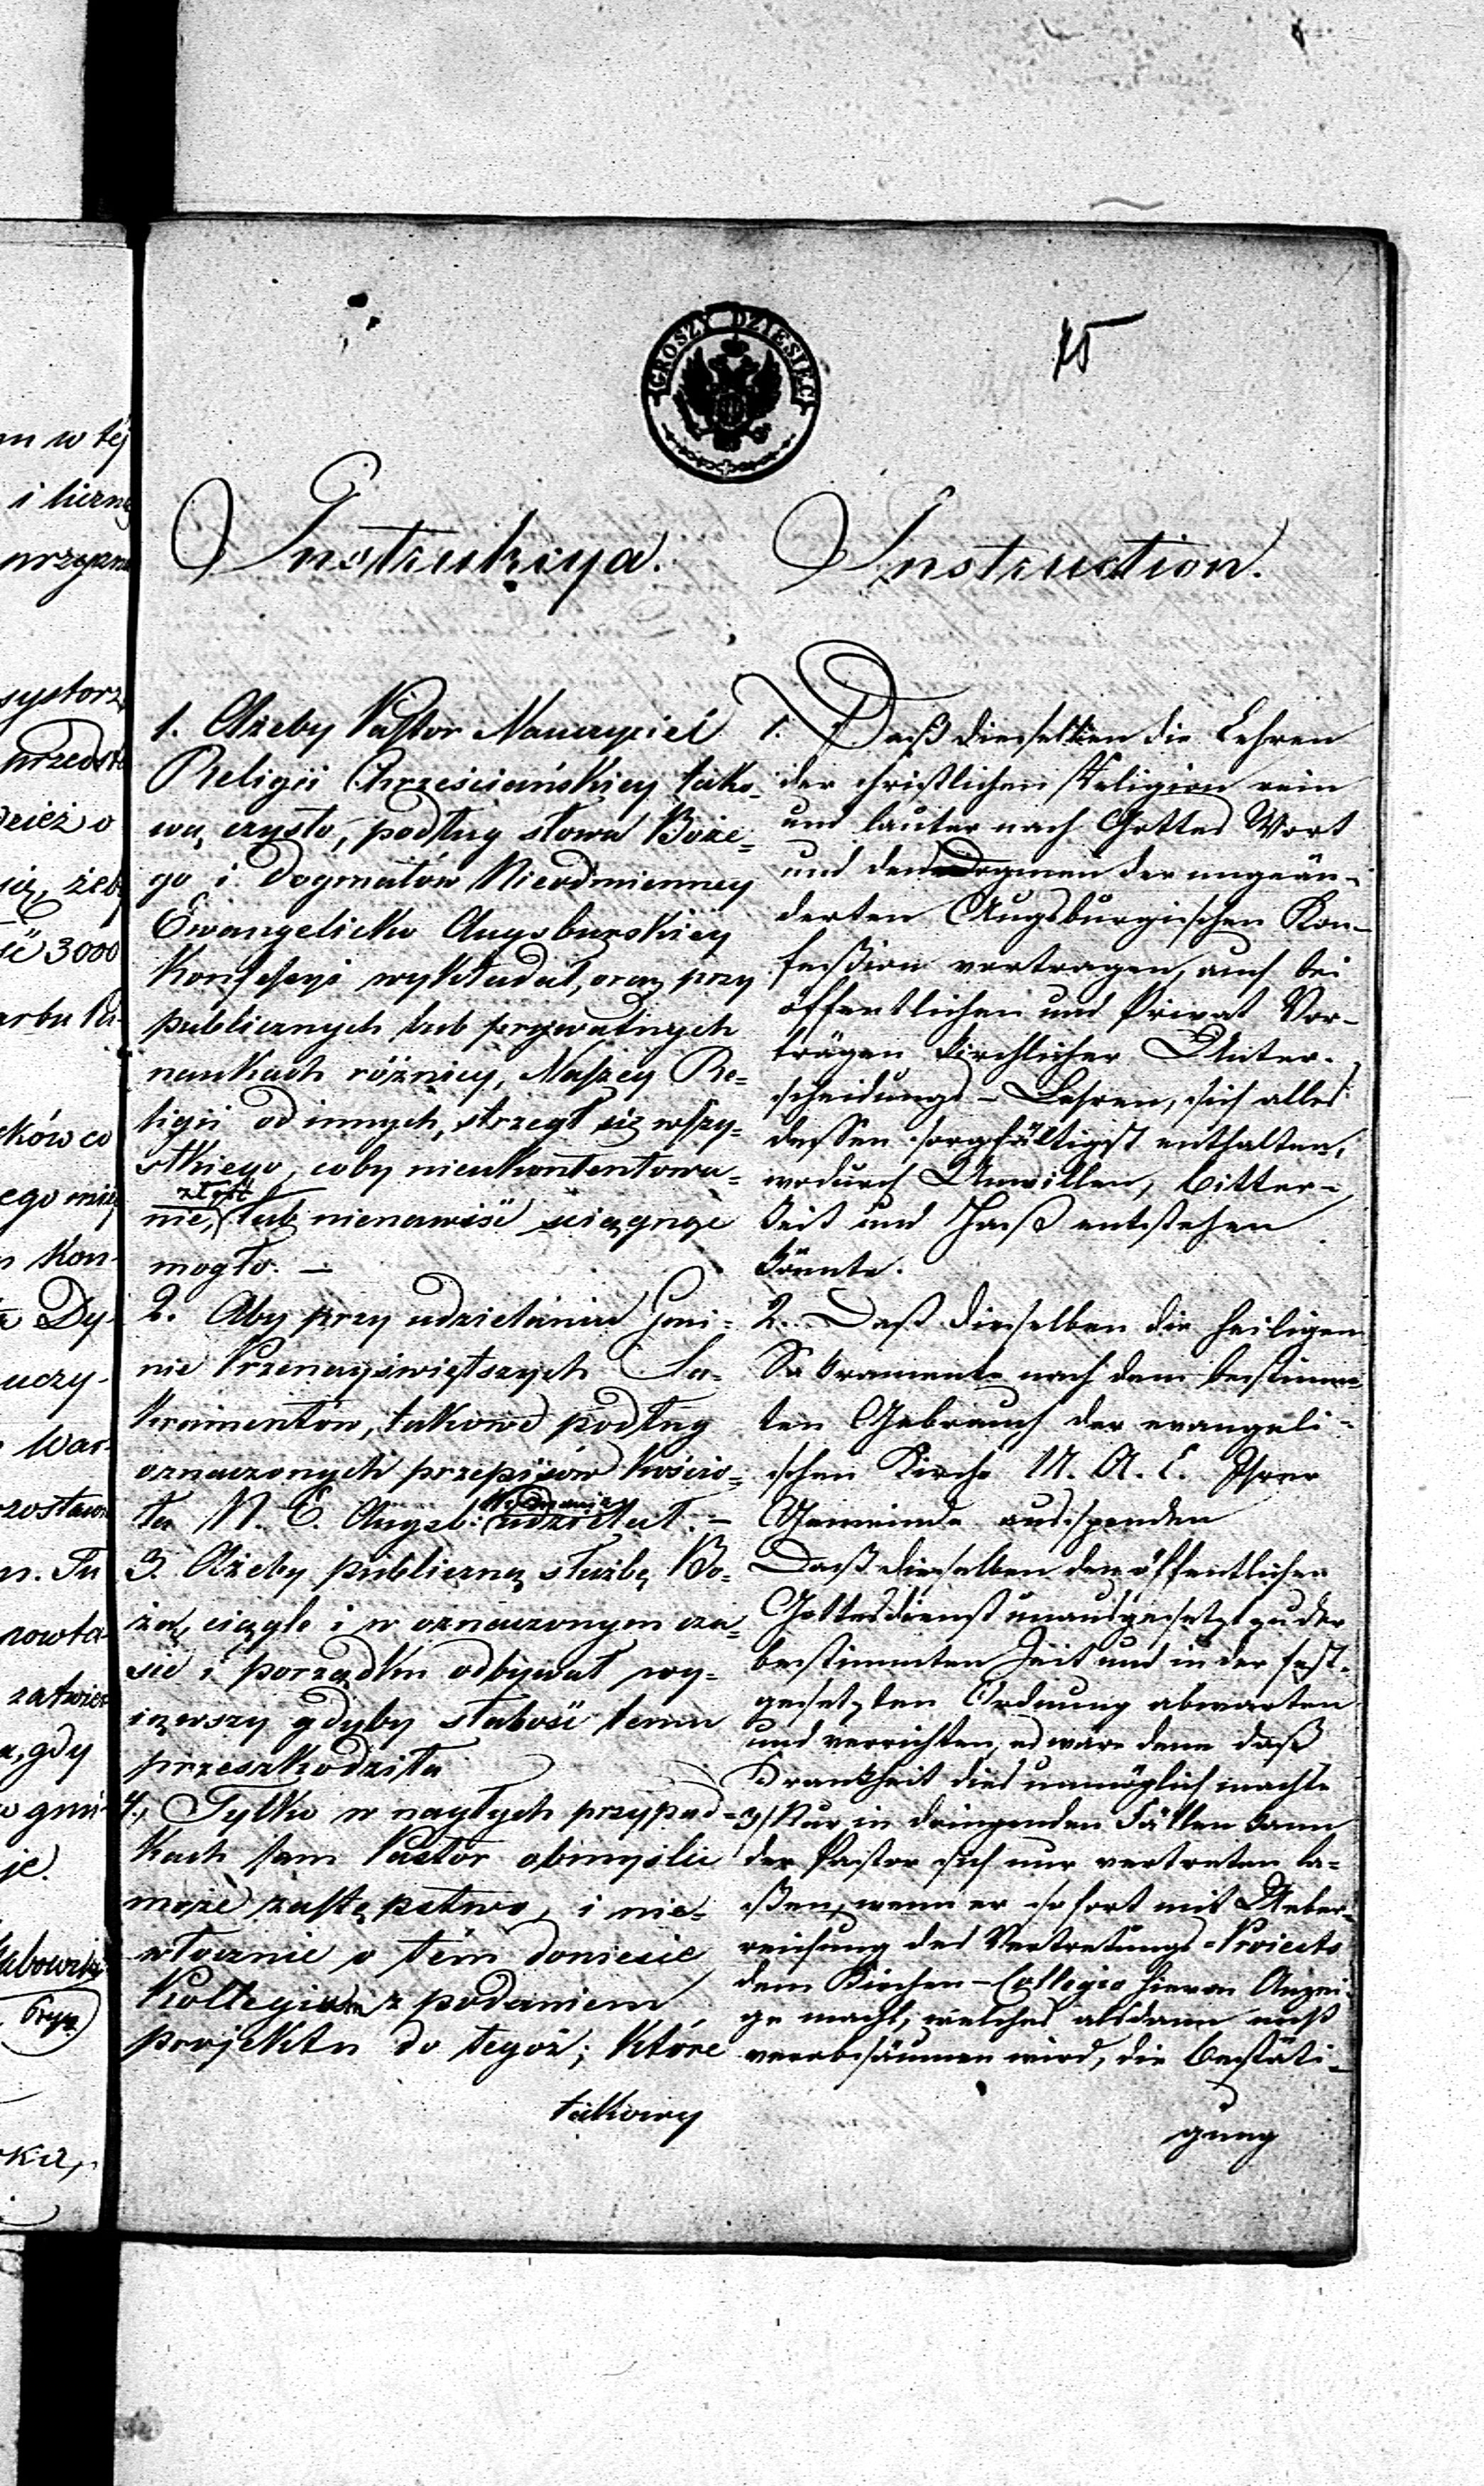 m w tej
i liczne
przyzna
systorz
przedsta
dzież o
się, żeb
ć 3000
arbu Pu-
ków co
ego mie
Kon-
Dy-
uczy-
War-
zostawi
n. Tu
nowta-
zatwier
a, gdy
gmi-
je.
ubowski
ka,
GROSZY DZIESIĘĆ
15
Instrukcya.
1. Ażeby Pastor Nauczyciel
Religii Chrześciańskiey tako-
wą czysto, podług słowa Boże-
go i Dogmatów Nieodmienney
Ewangelicko Augsburskiey
Konfessyi wykładał, oraz przy
publicznych lub prywatnych
naukach różnicy, Naszey Re-
ligii od innych, strzegł się wszy-
stkiego, coby nieukontentowa-
złość
nie, lub nienawiść sciągnąć
mogło. —
2. Aby przy udzielaniu Gmi-
nie Przenayświętszych Sa-
kramentów, takowe podług
oznaczonych przepisów Kościo-
ła N. E. Augsb: udzielał. —
3. Ażeby publiczną służbę Bo-
żą, ciągle i w oznaczonym cza-
sie i porządku odbywał wy-
iąwszy gdyby słabość temu
przeszkodziła
4., Tylko w nagłych przypad-
kach sam Pastor obmyślić
może zastępstwo, i nie-
włocznie o tém doniesie
Kollegium z podaniem
projektu do tegoż; które
takowy
Instruction.
1. Daß dieselben die Lehren
der christlichen Religion rein
und lauter nach Gottes Wort
und den Dogmen der ungeän-
derten Augsburgischen Kon-
feßion vortragen, auch bei
öffentlichen und Privat Vor-
trägen kirchlicher Unter-
scheidungs-Lehren, sich alles
dessen sorgfältigst enthalten,
wodurch Unwillen, Bitter-
keit und Haß entstehen
könnte.
2. Daß dieselben die heiligen
Sakramente nach dem bestimm-
ten Gebrauch der evangeli-
schen Kirche U. A. C. Ihrer
Gemeinde ausspenden
Daß dieselben den öffentlichen
Gottesdienst unausgesetzt zu der
bestimmten Zeit und in der fest-
gesetzten Ordnung abwarten
und verrichten, es wäre denn daß
Krankheit dies unmöglich machte
3/ Nur in dringenden Fällen kann
der Pastor sich nur vertreten la-
ßen, wenn er sofort mit Ueber-
reichung des Vertretungs-Proiects
dem Kirchen-Collegio hievon Anzei-
ge macht, welches alsdann nicht
verabsäumen wird, die Bestäti-
gung